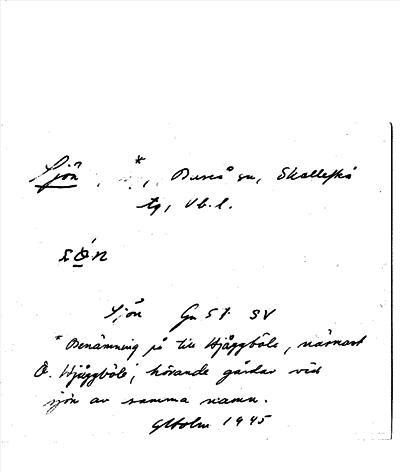 Sjön , *, Bureå sn, Skellefteå
tg, Vb.l.
Sjön Gn 57 SV
* Benämning på till Hjåggböle, närmast
Ö. Hjåggböle, hörande gårdar vid
sjön av samma namn.
GHolm 1945